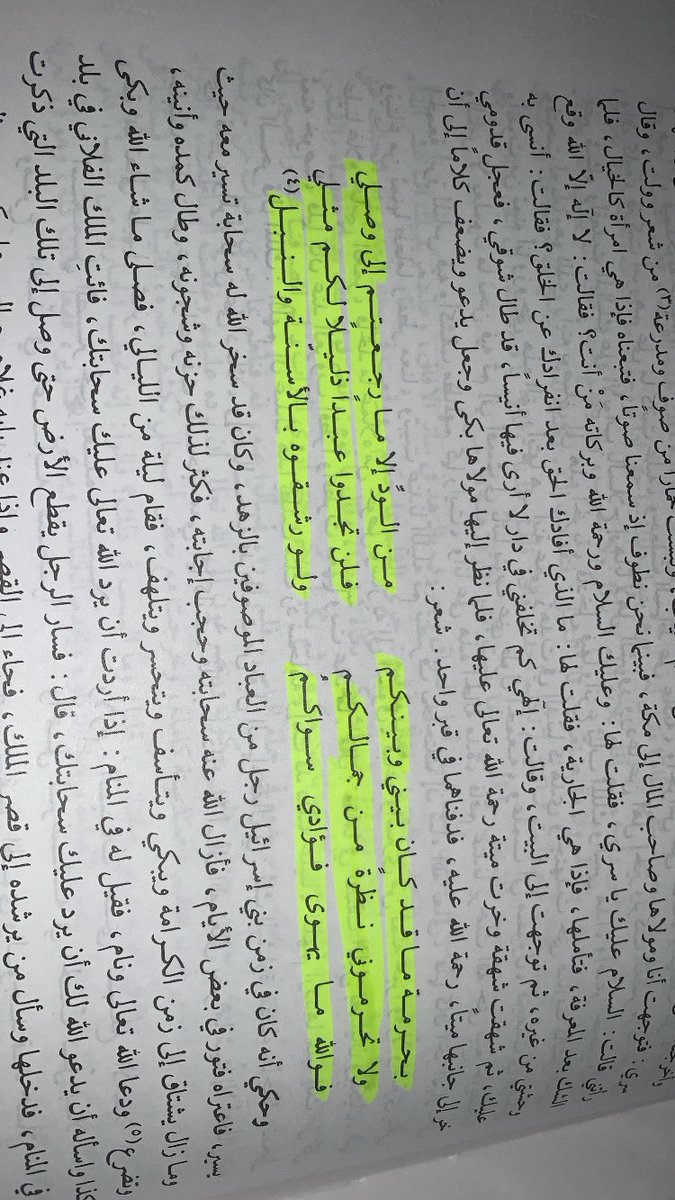 ولبست خمارا من صوفٍ ومدرعة(٣) من شعر وولت، وقال
سري: فتوجهت أنا ومولاها وصاحب المال إلى مكة، فبينما نحن نطوف إذ سمعنا صوتا، فتبعناه فإذا هي امرأة كالخيال، فلما
رأتني قالت: السلام عليك يا سري، فقلت لها: وعليك السلام ورحمة الله وبركاته مَنْ أنت؟ فقالت: لا إله إلا الله وقع
الشك بعد المعرفة، فتأملها، فإذا هي الجارية، فقلت لها: ما الذي أفادك الحق بعد انفرادك عن الخلق؟ فقالت: أنسي به
وحشتي من غيره، ثم توجهت إلى البيت، وقالت: إلهي كم تخلفني في دار لا أرى فيها أنيساً، قد طال شوقي، فعجل قدومي
عليك، ثم شهقت شهقة وخرت ميتة رحمة الله تعالى عليها، فلما نظر إليها مولاها بكى وجعل يدعو ويضعف كلاماً إلى أن
خر إلى جانبها ميتاً، رحمة الله عليه، فدفناهما في قبر واحد. شعر:
بحرمة ما قد كان بيني وبينكم من الودِّ إلا ما رجعتم إلى وصلي
ولا تحرموني نظرةً من جمالكم فلن تجدوا عبداً ذليلاً لكم مثلي
فوالله ما يهوى فؤادي سواكم ولو رشقوه بالأسنّة والنبل(٤)
وحكي أنه كان في زمن بني إسرائيل رجل من العباد الموصوفين بالزهد، وكان قد سخر الله له سحابة تسير معه حيث
يسير، فاعتراه فتور في بعض الأيام، فأزال الله عنه سحابته وحجب إجابته، فكثر لذلك حزنه وشجونه، وطال كمده وأنينه،
وما زال يشتاق إلى زمن الكرامة ويبكي ويتأسف ويتحسر ويتلهف، فقام ليلة من الليالي، فصلى ما شاء الله وبكى
وتضرع(٥) ودعا الله تعالى ونام، فقيل له في المنام: إذا أردت أن يرد الله تعالى عليك سحابتك، فائتِ الملك الفلاني في بلد
كذا واسأله أن يدعو الله لك أن يرد عليك سحابتك، قال: فسار الرجل يقطع الأرض حتى وصل إلى تلك البلد التي ذكرت
في المنام، فدخلها وسأل من يرشده إلى قصر الملك، فجاء إلى القصر وإذا عند بابه غلام